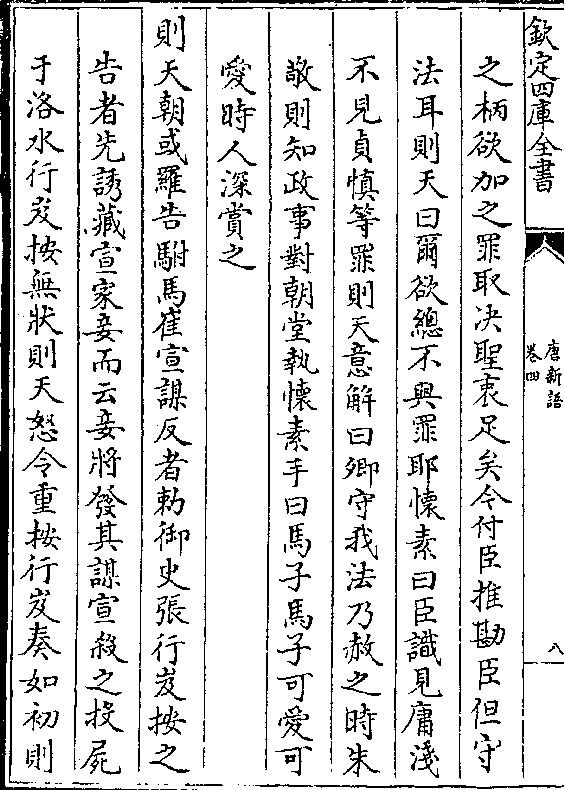 欽定四庫全書
唐新語
卷四
八
之柄欲加之罪取決聖衷足矣今付臣推勘臣但守
法耳則天曰爾欲總不與罪耶懷素曰臣識見庸淺
不見貞慎等罪則天意解曰卿守我法乃赦之時朱
敬則知政事對朝堂執懷素手曰馬子馬子可愛可
愛時人深賞之
則天朝或羅告駙馬崔宣謀反者勅御史張行岌按之
告者先誘藏宣家妾而云妾將發其謀宣殺之投屍
于洛水行岌按無狀則天怒令重按行岌奏如初則